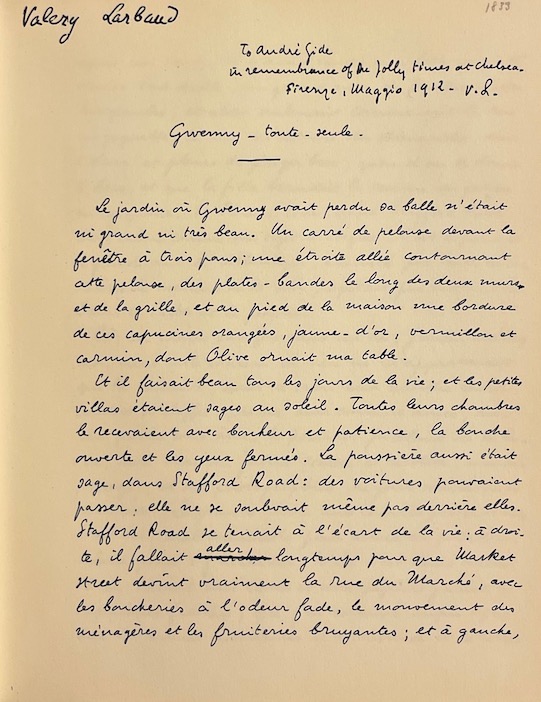 Valery Larbaud
1833
To André Gide
in remembrance of the jolly times at Chelsea.
Firenze, Maggio 1912 - V. L.
Gwenny - toute - seule.
Le jardin où Gwenny avait perdu sa balle n'était
ni grand ni très beau. Un carré de pelouse devant la
fenêtre à trois pans ; une étroite allée contournant
cette pelouse, des plates-bandes le long des deux murs,
et de la grille, et au pied de la maison une bordure
de ces capucines orangées, jaune-d'or, vermillon et
carmin, dont Olive ornait ma table.
Et il faisait beau tous les jours de la vie ; et les petites
villas étaient sages au soleil. Toutes leurs chambres
le recevaient avec bonheur et patience, la bouche
ouverte et les yeux fermés. La poussière aussi était
sage, dans Stafford Road : des voitures pouvaient
passer : elle ne se soulevait même pas derrière elles.
Stafford Road se tenait à l'écart de la vie : à droi-
te, il fallait aller longtemps pour que Market
Street devînt vraiment la rue du Marché, avec
les boucheries à l'odeur fade, le mouvement des
ménagères et les fruiteries bruyantes ; et à gauche,